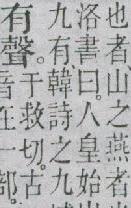 也者山之燕者
洛書曰。人皇始出
九有。韓詩之九
有聲。
于救切。古
音在一部。